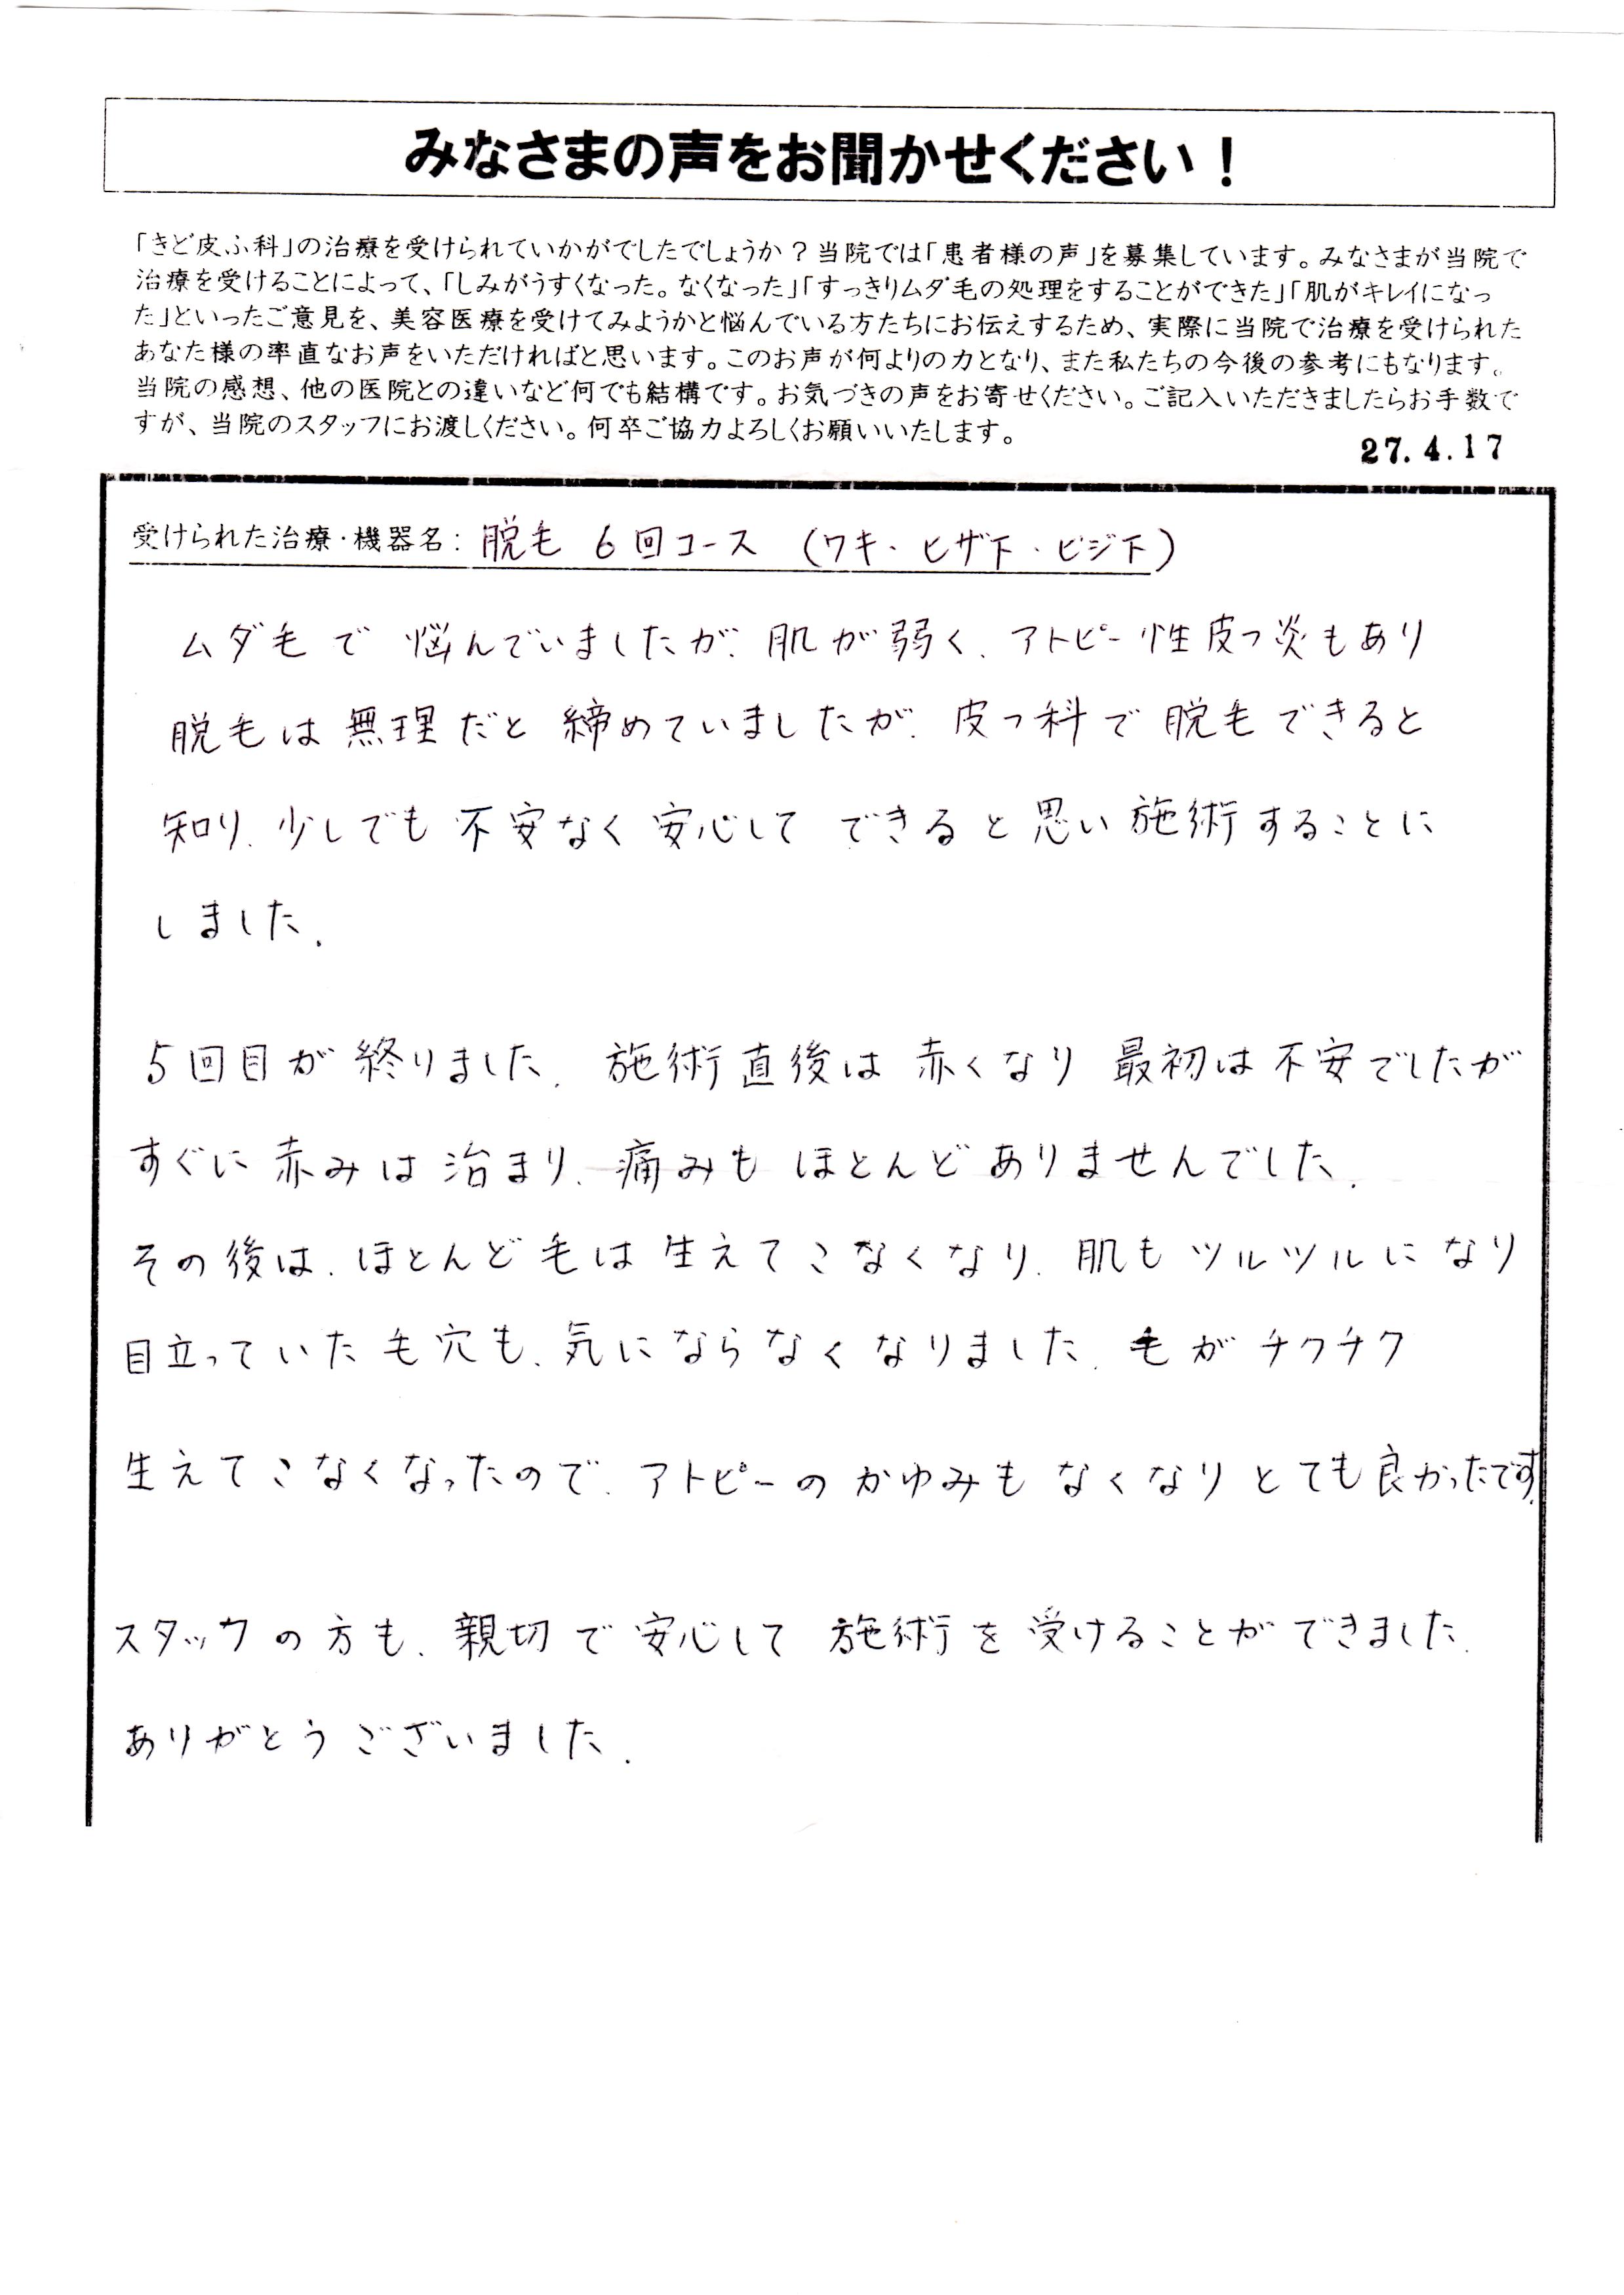 みなさまの声をお聞かせください！
「きど皮ふ科」の治療を受けられていかがでしたでしょうか？当院では「患者様の声」を募集しています。みなさまが当院で
治療を受けることによって、「しみがうすくなった。なくなった」「すっきりムダ毛の処理をすることができた」「肌がキレイになっ
た」といったご意見を、美容医療を受けてみようかと悩んでいる方たちにお伝えするため、実際に当院で治療を受けられた
あなた様の率直なお声をいただければと思います。このお声が何よりの力となり、また私たちの今後の参考にもなります。
当院の感想、他の医院との違いなど何でも結構です。お気づきの声をお寄せください。ご記入いただきましたらお手数で
すが、当院のスタッフにお渡しください。何卒ご協力よろしくお願いいたします。
27.4.17
受けられた治療・機器名：脱毛 6回コース （ワキ・ヒザ下・ヒジ下）
ムダ毛で悩んでいましたが、肌が弱く、アトピー性皮フ炎もあり
脱毛は無理だと締めていましたが、皮フ科で脱毛できると
知り、少しでも不安なく安心してできると思い施術することに
しました。
5回目が終りました。施術直後は赤くなり最初は不安でしたが
すぐに赤みは治まり、痛みもほとんどありませんでした。
その後は、ほとんど毛は生えてこなくなり、肌もツルツルになり
目立っていた毛穴も、気にならなくなりました。毛がチクチク
生えてこなくなったので、アトピーのかゆみもなくなりとても良かったです。
スタッフの方も、親切で安心して施術を受けることができました。
ありがとうございました。